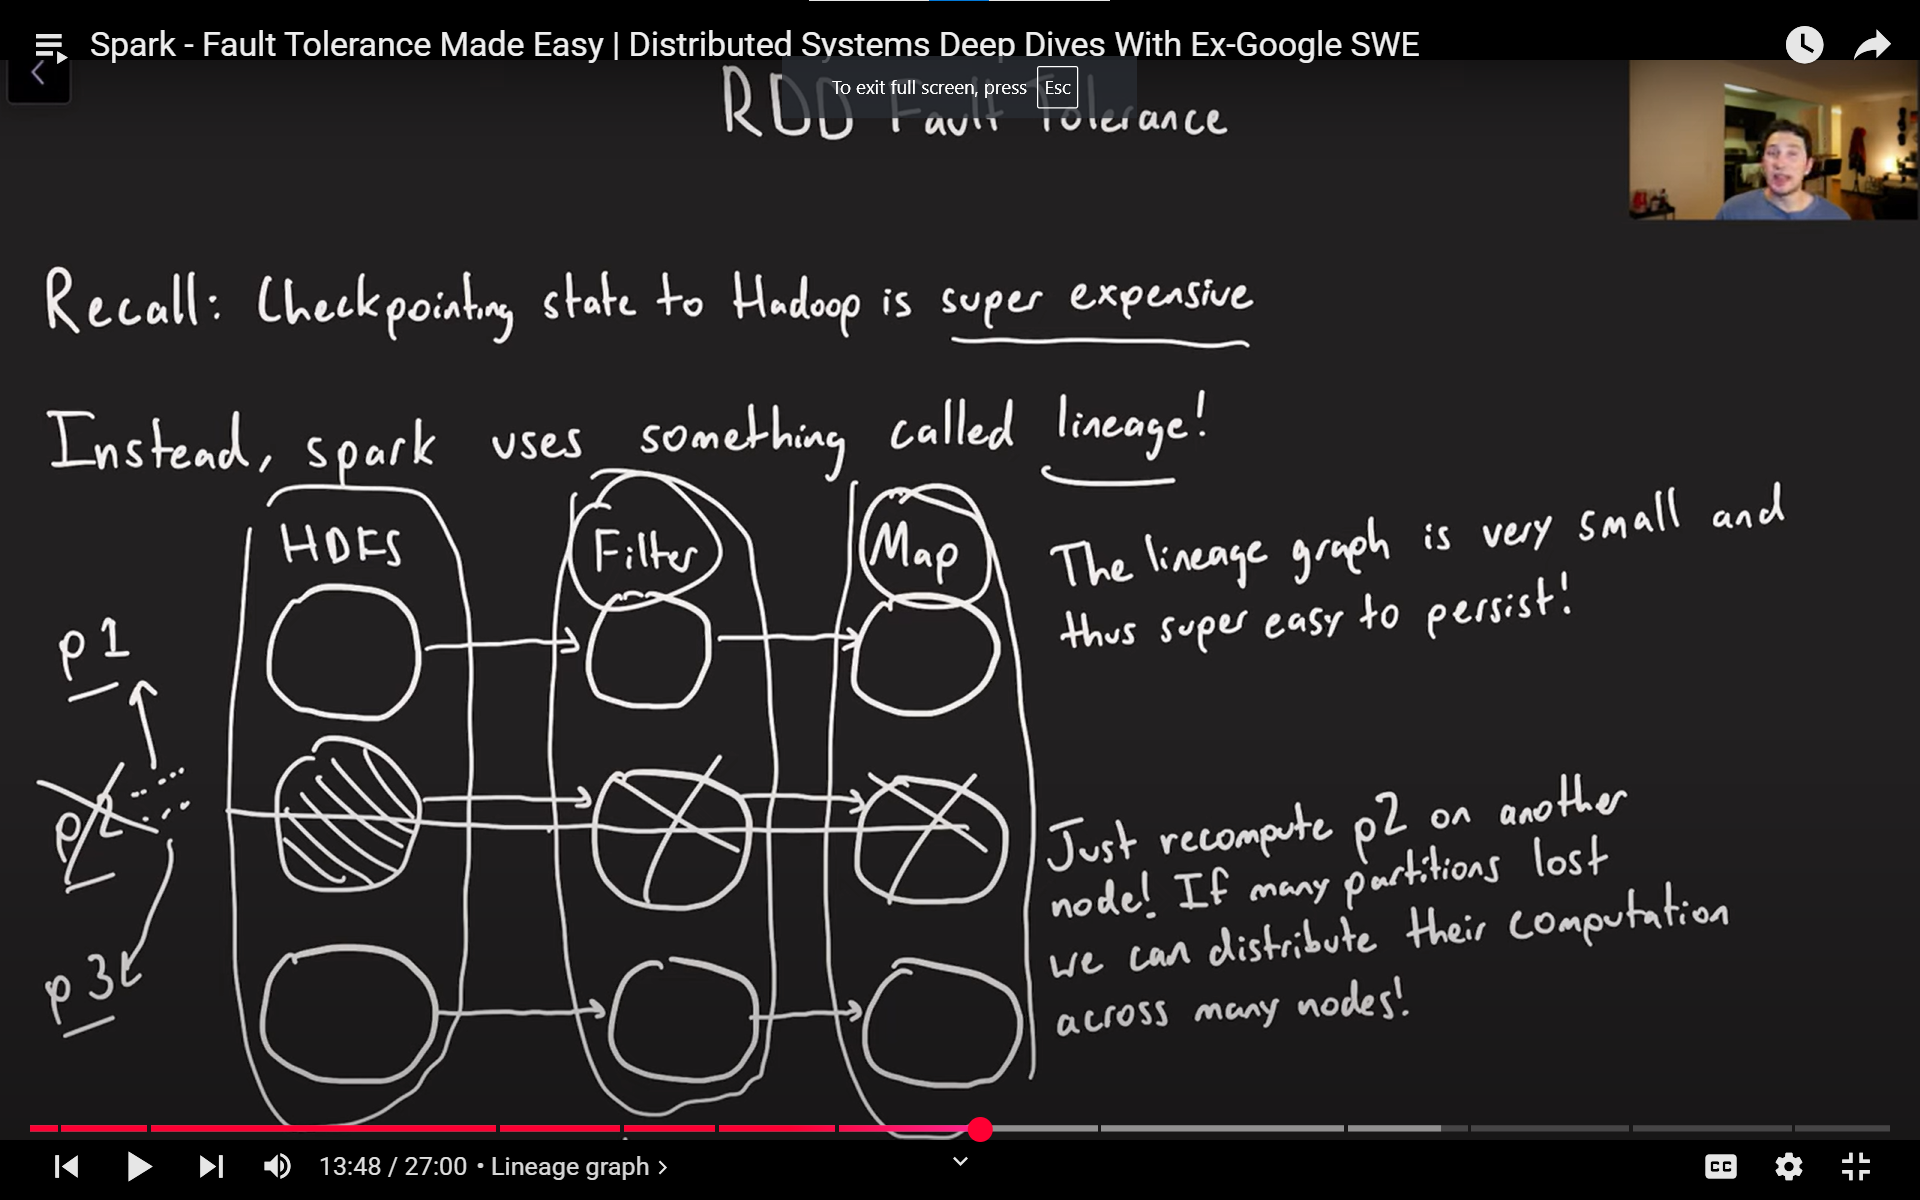 Spark - Fault Tolerance Made Easy | Distributed Systems Deep Dives With Ex-Google SWE
To exit full screen, press Esc
RDD Fault Tolerance
Recall: Checkpointing state to Hadoop is super expensive
Instead, spark uses something called lineage!
HDFS Filter Map
The lineage graph is very small and
thus super easy to persist!
p1
p2
p3
Just recompute p2 on another
node! If many partitions lost
we can distribute their computation
across many nodes!
13:48 / 27:00 • Lineage graph >
CC